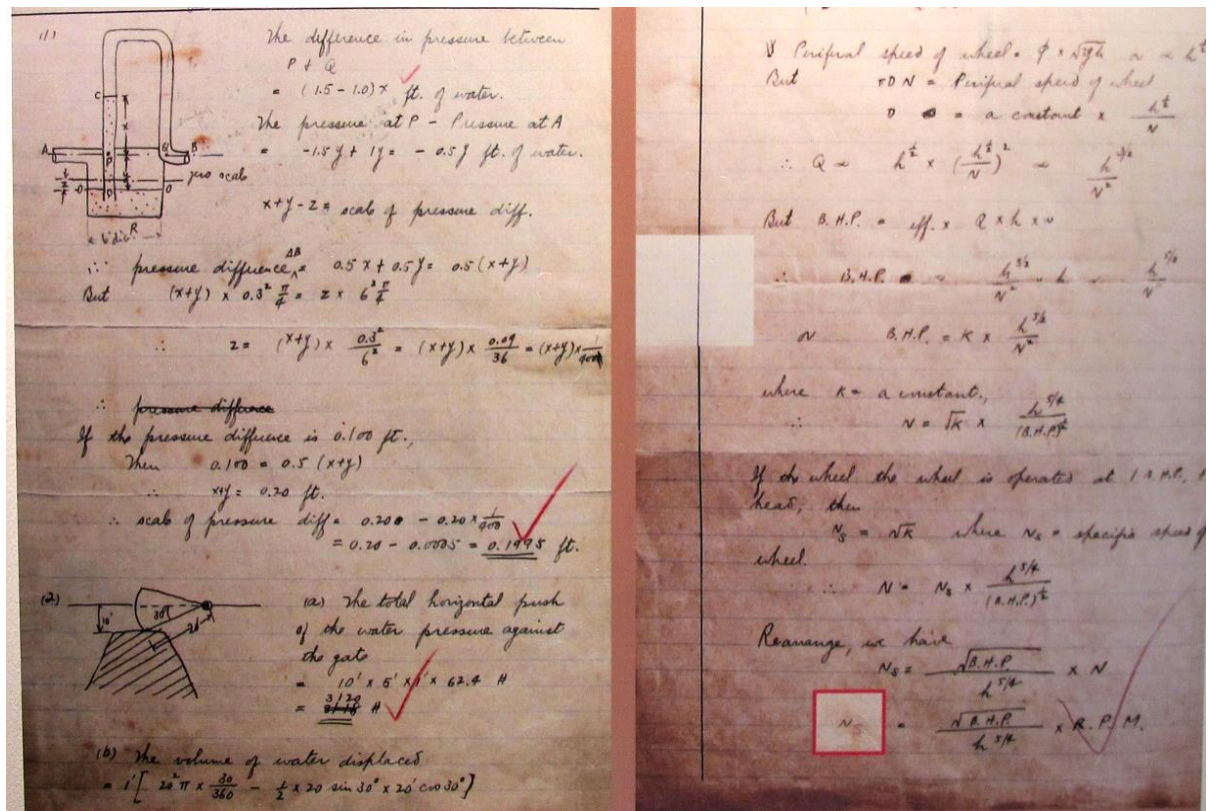 (1)
The difference in pressure between
P + Q
= (1.5 - 1.0)x ft. of water.
The pressure at P - Pressure at A
= -1.5y + 1y = - 0.5y ft. of water.
x+y-z = scale of pressure diff.
C
x
A
P
Q
B
y
zero scale
O
D
O
R
6" dia.
∴ pressure difference AB = 0.5x + 0.5y = 0.5(x+y)
But (x+y) × 0.3² π/4 = z × 6² π/4
∴ z = (x+y) × 0.3²/6² = (x+y) × 0.09/36 = (x+y) × 1/400
∴ pressure difference
If the pressure difference is 0.100 ft.,
Then 0.100 = 0.5 (x+y)
∴ x+y = 0.20 ft.
∴ scale of pressure diff = 0.200 - 0.20 × 1/400
= 0.20 - 0.0005 = 0.1995 ft.
(2)
10'
30°
20'
(a) The total horizontal push
of the water pressure against
the gate
= 10' × 5' × 1' × 62.4 #
= 3120 #
(b) The volume of water displaced
= 1' [ 20² π × 30/360 - 1/2 × 20 sin 30° × 20' cos 30° ]
Perifural speed of wheel = φ × √2gh
But πDN = Perifural speed of wheel
D = a constant × h^½/N
∴ Q ∝ h^½ × (h^½/N)² ∝ h^3/2/N²
But B.H.P. = eff. × Q × h × w
∴ B.H.P. ∝ h^3/2/N² × h ∝ h^5/2/N²
or B.H.P. = K × h^5/2/N²
where K = a constant.,
∴ N = √K × h^5/4/(B.H.P.)^½
If the wheel the wheel is operated at 1 B.H.P.,
head, then
Ns = √K where Ns = specific speed of
wheel.
∴ N = Ns × h^5/4/(B.H.P.)^½
Rearrange, we have
Ns = √B.H.P./h^5/4 × N
Ns = √B.H.P./h^5/4 × R.P.M.